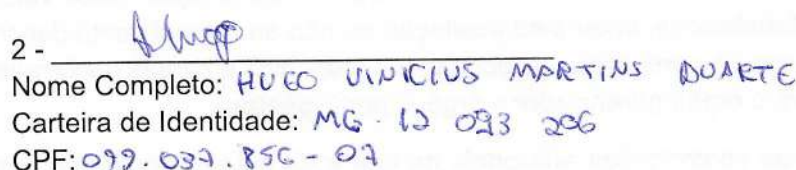 2 -
Nome Completo: HUGO VINICIUS MARTINS DUARTE
Carteira de Identidade: MG. 12 093 206
CPF: 099.037.856-07